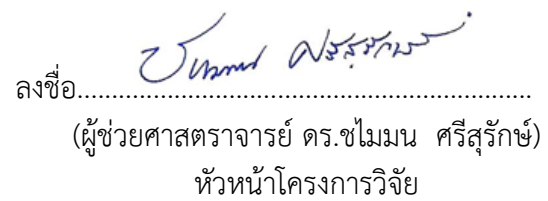 ชไมมน ศรีสุรักษ์
ลงชื่อ..................................................................
(ผู้ช่วยศาสตราจารย์ ดร.ชไมมน  ศรีสุรักษ์)
หัวหน้าโครงการวิจัย